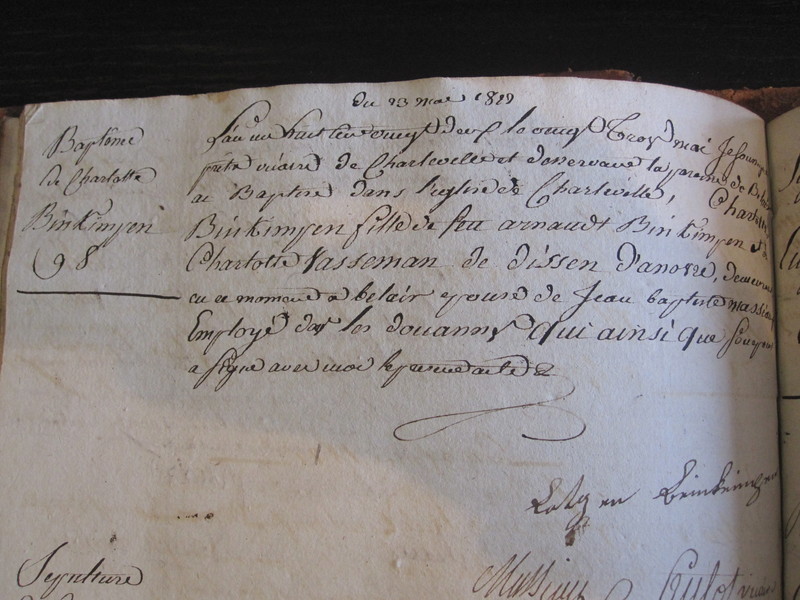 Du 23 mai 1822
Baptême
de Charlotte
Binkimpen
98
L'an mil huit cent vingt deux le vingt Trois mai Je soussigné
prêtre vicaire de Charleville et desservant la paroisse de
ai Baptisé dans l'eglise de Charleville, Charlotte
Binkimpen fille de feu arnaudt Binkimpen et de
Charlotte Vasseman de dissen d'anovre, demeurant
en ce moment a belair epouse de Jean baptiste massin
Employé dans les douannes qui ainsi que son epouse
a signé avec moi le present acte
Massin
Sepulture